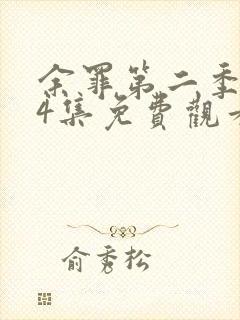 余罪第二季
4集免費觀看
俞秀松